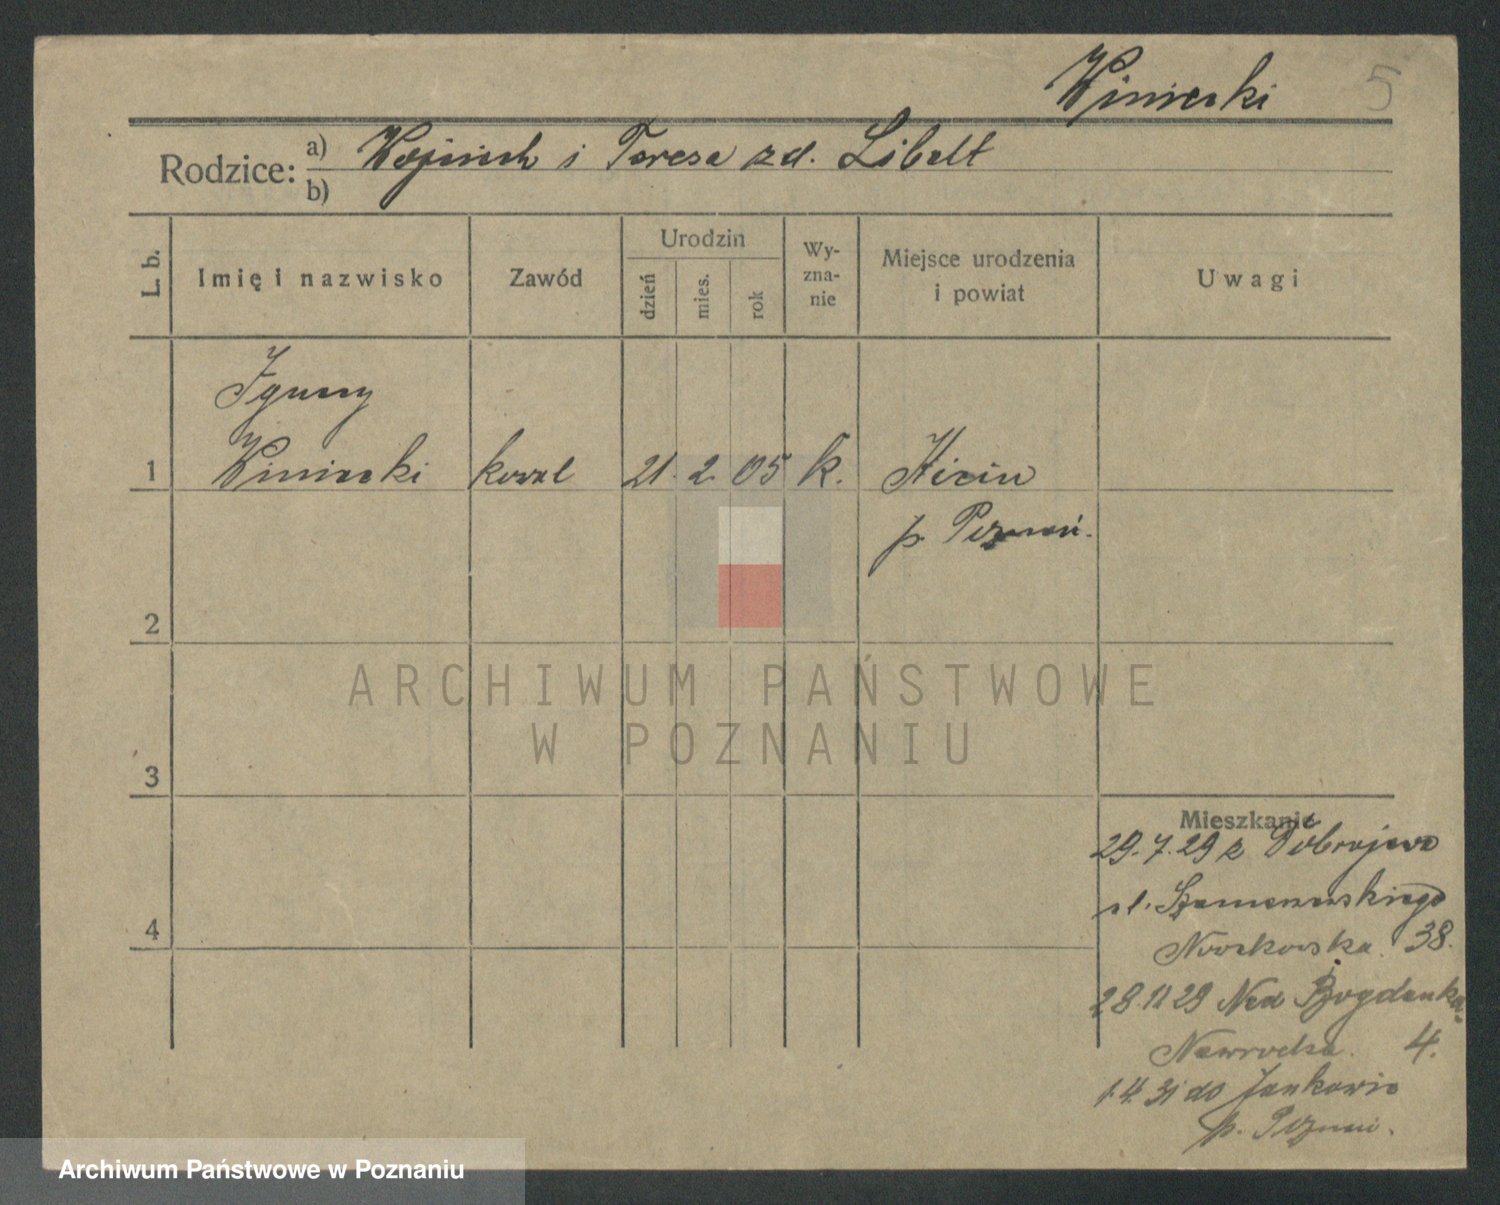 Winiecki 5
Rodzice: a) Wojciech i Teresa zd. Libelt
b)
L. b.
Imię i nazwisko
Zawód
Urodzin
dzień
mies.
rok
Wy-
zna-
nie
Miejsce urodzenia
i powiat
Uwagi
Ignacy
1 Winiecki kowal 21. 2. 05 k. Kicin
p. Poznań.
2
3
4
Mieszkanie
29.7.29 z Dobrojewo
Nawrocka. 4.
28.11.29 Nad Bogdanką
38.
1.4.31 do Jankowic
p. Poznań.
ARCHIWUM PAŃSTWOWE
W POZNANIU
Archiwum Państwowe w Poznaniu